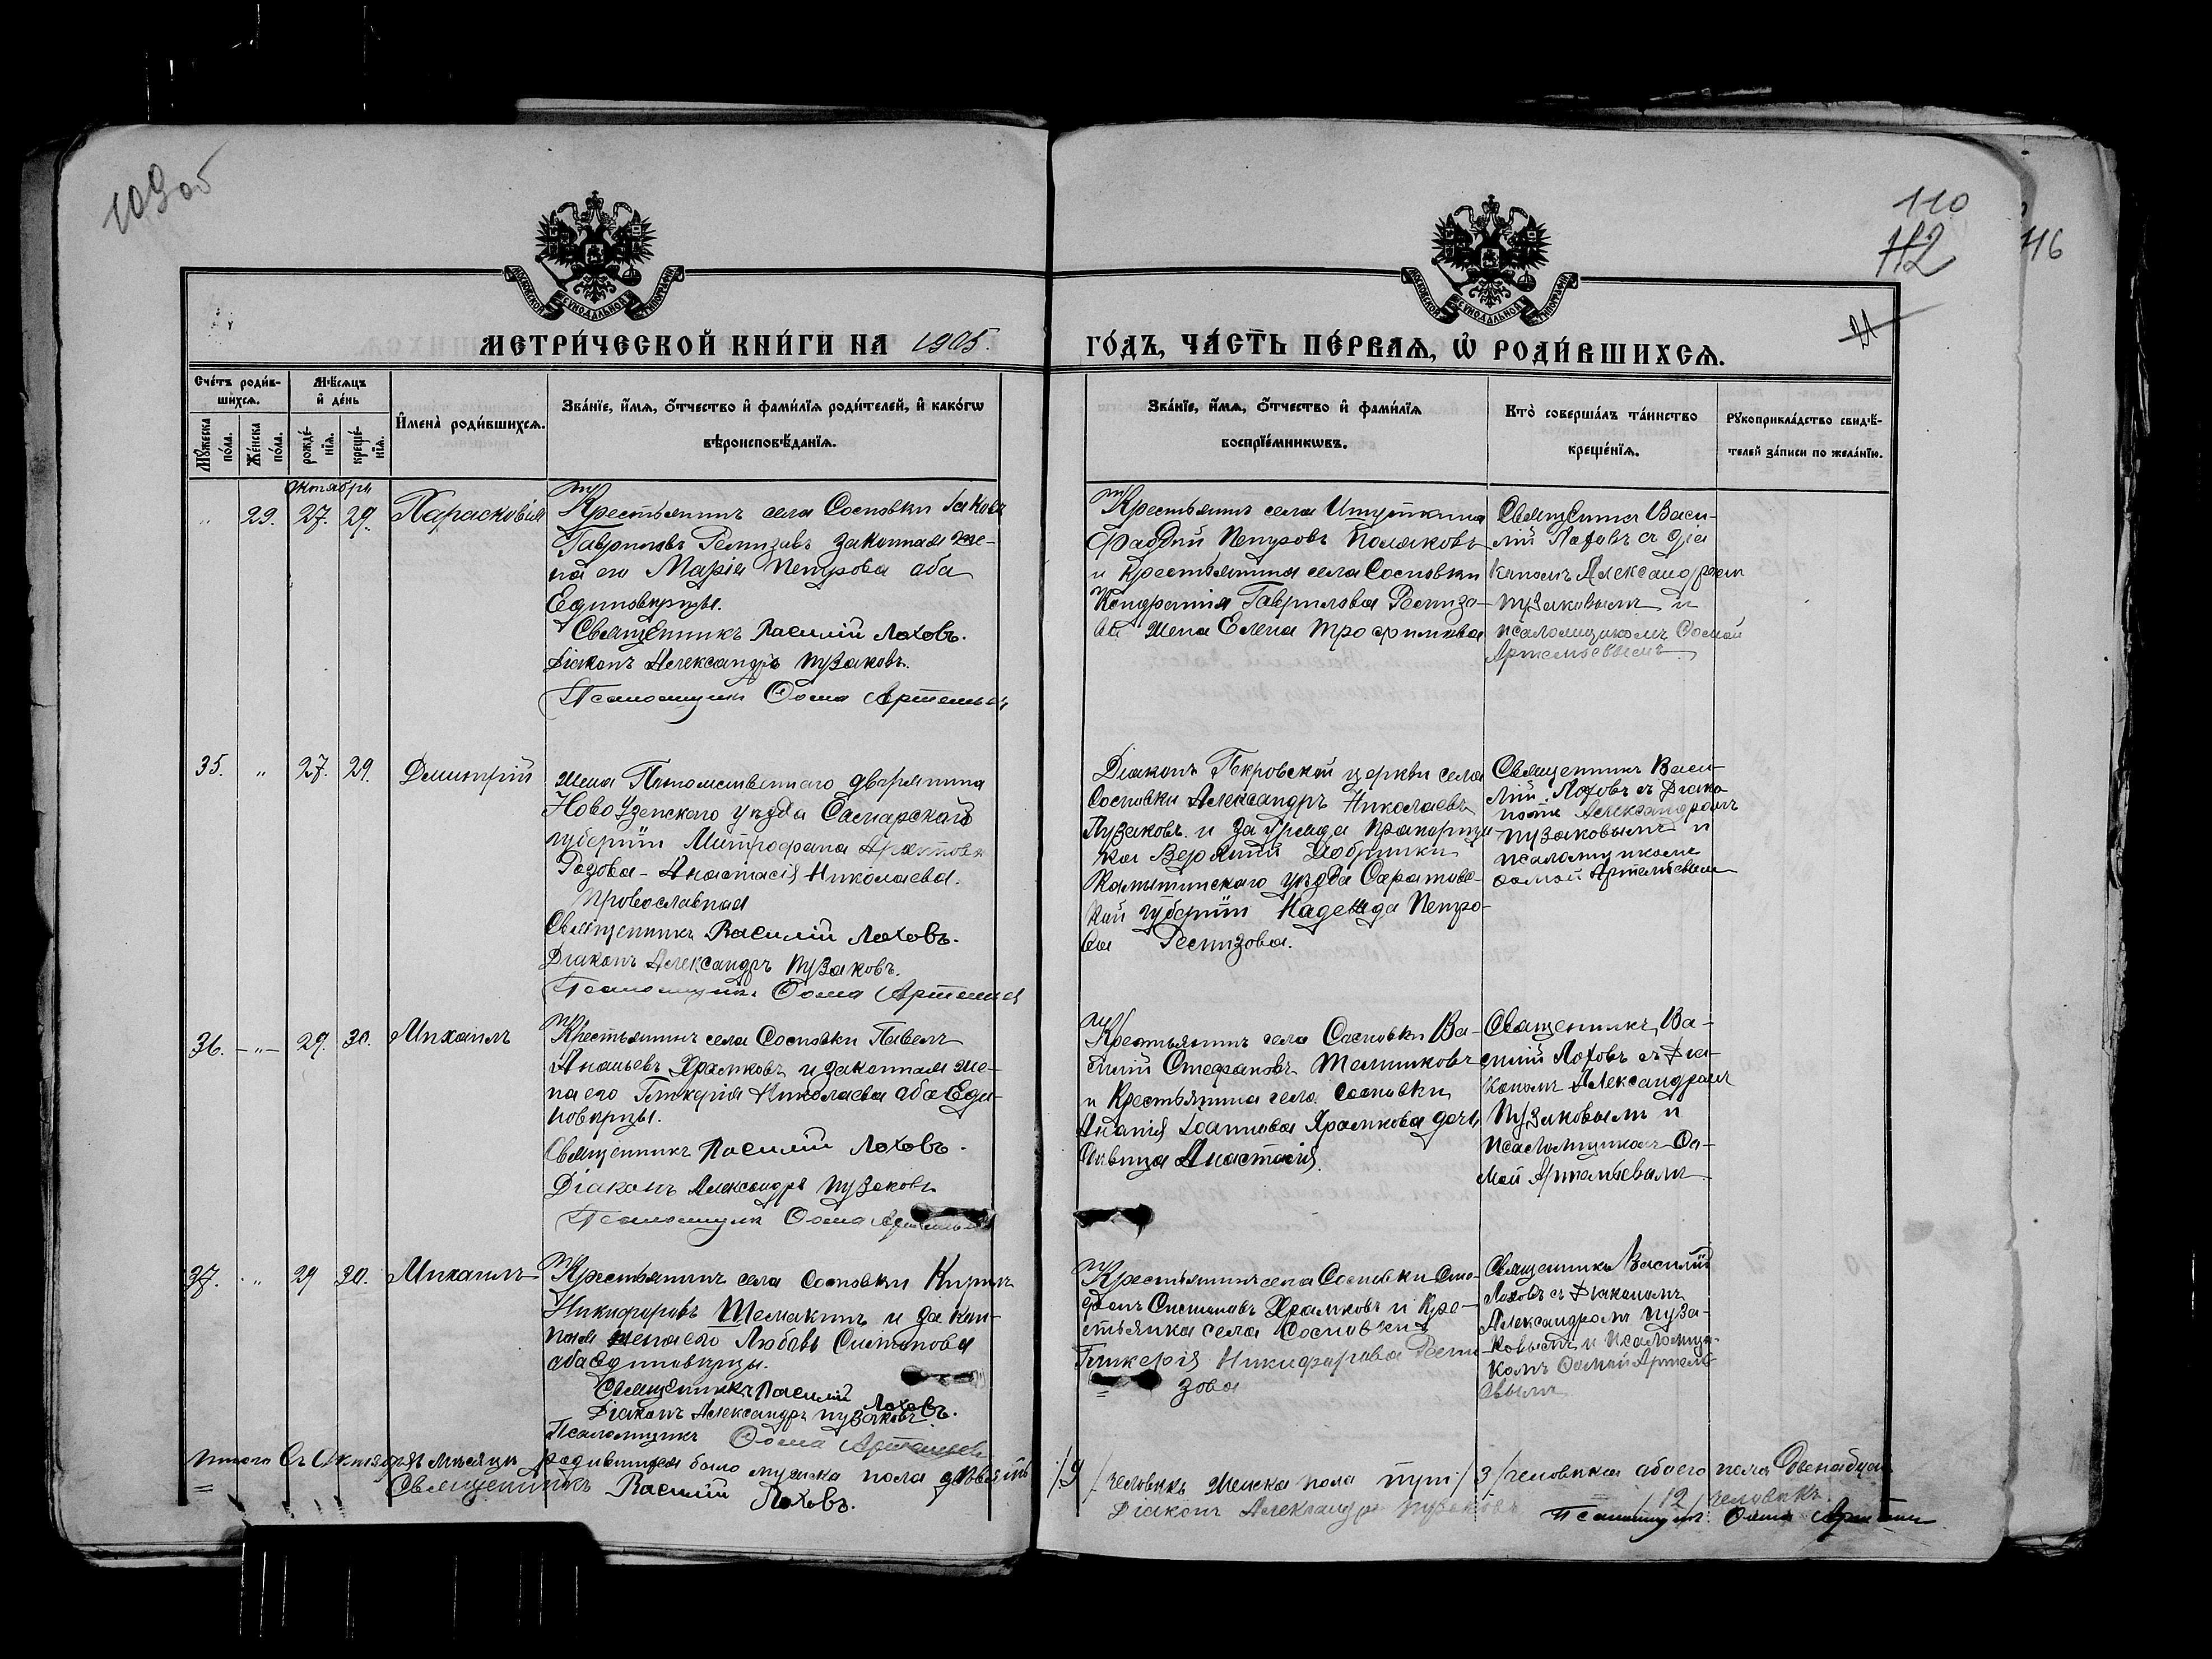 109об
110
112
116
21
МЕТРИ́ЧЕСКОЙ КНИ́ГИ НА 1905.
ГО́ДЪ, ЧА́СТЬ ПЕ́РВАѦ, Ѡ҆ РОДИ́ВШИХСѦ.
Сче́тъ роди́в-
шихсѧ.
Мѣ́сѧцъ
и҆ де́нь
Мꙋ́жеска
по́ла.
Же́нска
по́ла.
рожде́-
нїѧ.
креще́-
нїѧ.
И҆мена̀ роди́вшихсѧ.
Зва́нїе, и҆́мѧ, ѻ҆́тчество и҆ фами́лїѧ роди́телей, и҆ како́гѡ
вѣроисповѣ́данїѧ.
Зва́нїе, и҆́мѧ, ѻ҆́тчество и҆ фами́лїѧ
воспрїе́мникѡвъ.
Кто̀ соверша́лъ та́инство
креще́нїѧ.
Рꙋкоприкла́дство свидѣ́-
телей за́писи по жела́нїю.
Октябрь
„ 29. 27. 29. Парасковія
Крестьянинъ села Сосновки Іаковъ
Гавриловъ Ремизовъ законная же-
на его Марія Петрова оба
Единовѣрцы.
Священникъ Василій Лоховъ.
Діаконъ Александръ Пузаковъ.
Псаломщикъ Ѳома Артемьевъ
Крестьянинъ села
Фаддій Петровъ Поляковъ
и крестьянина села Сосновки
Кондратія Гаврилова Ремизо-
ва жена Елена Трофимова
Священникъ Васи-
лій Лоховъ съ діа
кономъ Александромъ
Пузаковымъ и
псаломщикомъ Ѳомой
Артемьевымъ
35. „ 27. 29. Димитрій
жена Потомственнаго дворянина
Новоузенскаго уѣзда Самарской
губерніи Митрофана
Розова - Анастасія Николаева.
Православная
Священникъ Василій Лоховъ.
Діаконъ Александръ Пузаковъ.
Псаломщикъ Ѳома Артемьев
Діаконъ Покровской церкви села
Сосновки Александръ Николаевъ
Пузаковъ и Зауряда Прапорщи
ка Верхній Добринки
Камышинскаго уѣзда Саратовс-
кой губерніи Надежда Петро-
ва Ремизова.
Священникъ Васи-
лій Лоховъ съ Діако
номъ Александромъ
Пузаковымъ и
псаломщикомъ
Ѳомой Артемьевымъ
36. „ 29. 30. Михаилъ
Крестьянинъ села Сосновки Павелъ
Ананьевъ Храмковъ и законная же-
на его Гликерія Николаева оба Еди-
новѣрцы.
Священникъ Василій Лоховъ.
Діаконъ Александръ Пузаковъ
Псаломщикъ Ѳома Артемьевъ
Крестьянинъ села Сосновки Ва-
силій Стефановъ Мельниковъ
и Крестьянина села Сосновки
Ананія Іоаннова Храмкова дочь
дѣвица Анастасія.
Священникъ Ва-
силій Лоховъ съ Діа-
кономъ Александромъ
Пузаковымъ и
псаломщикомъ Ѳо-
мой Артемьевымъ
37. „ 29 30. Михаилъ
Крестьянинъ села Сосновки Кирилъ
Никифоровъ Шемакинъ и закон-
ная жена его Любовь
оба единовѣрцы.
Священникъ Василій Лоховъ.
Діаконъ Александръ Пузаковъ.
Псаломщикъ Ѳома Артемьевъ
Крестьянинъ села Сосновки Сте-
фанъ Храмковъ и Кре-
стьянка села Сосновки
Гликерія Никифорова Реми
зова
Священникъ Василій
Лоховъ съ Діакономъ
Александромъ Пуза-
ковымъ и псаломщи-
комъ Ѳомой Артемь-
евымъ
Итого въ Октябрѣ мѣсяцѣ родившихся было мужска пола девять /9/ человѣкъ женска пола три /3/ человѣка обоего пола двенадцать
/12/ человѣкъ.
Священникъ Василій Лоховъ.
Діаконъ Александръ Пузаковъ
Псаломщикъ Ѳома Артемьев